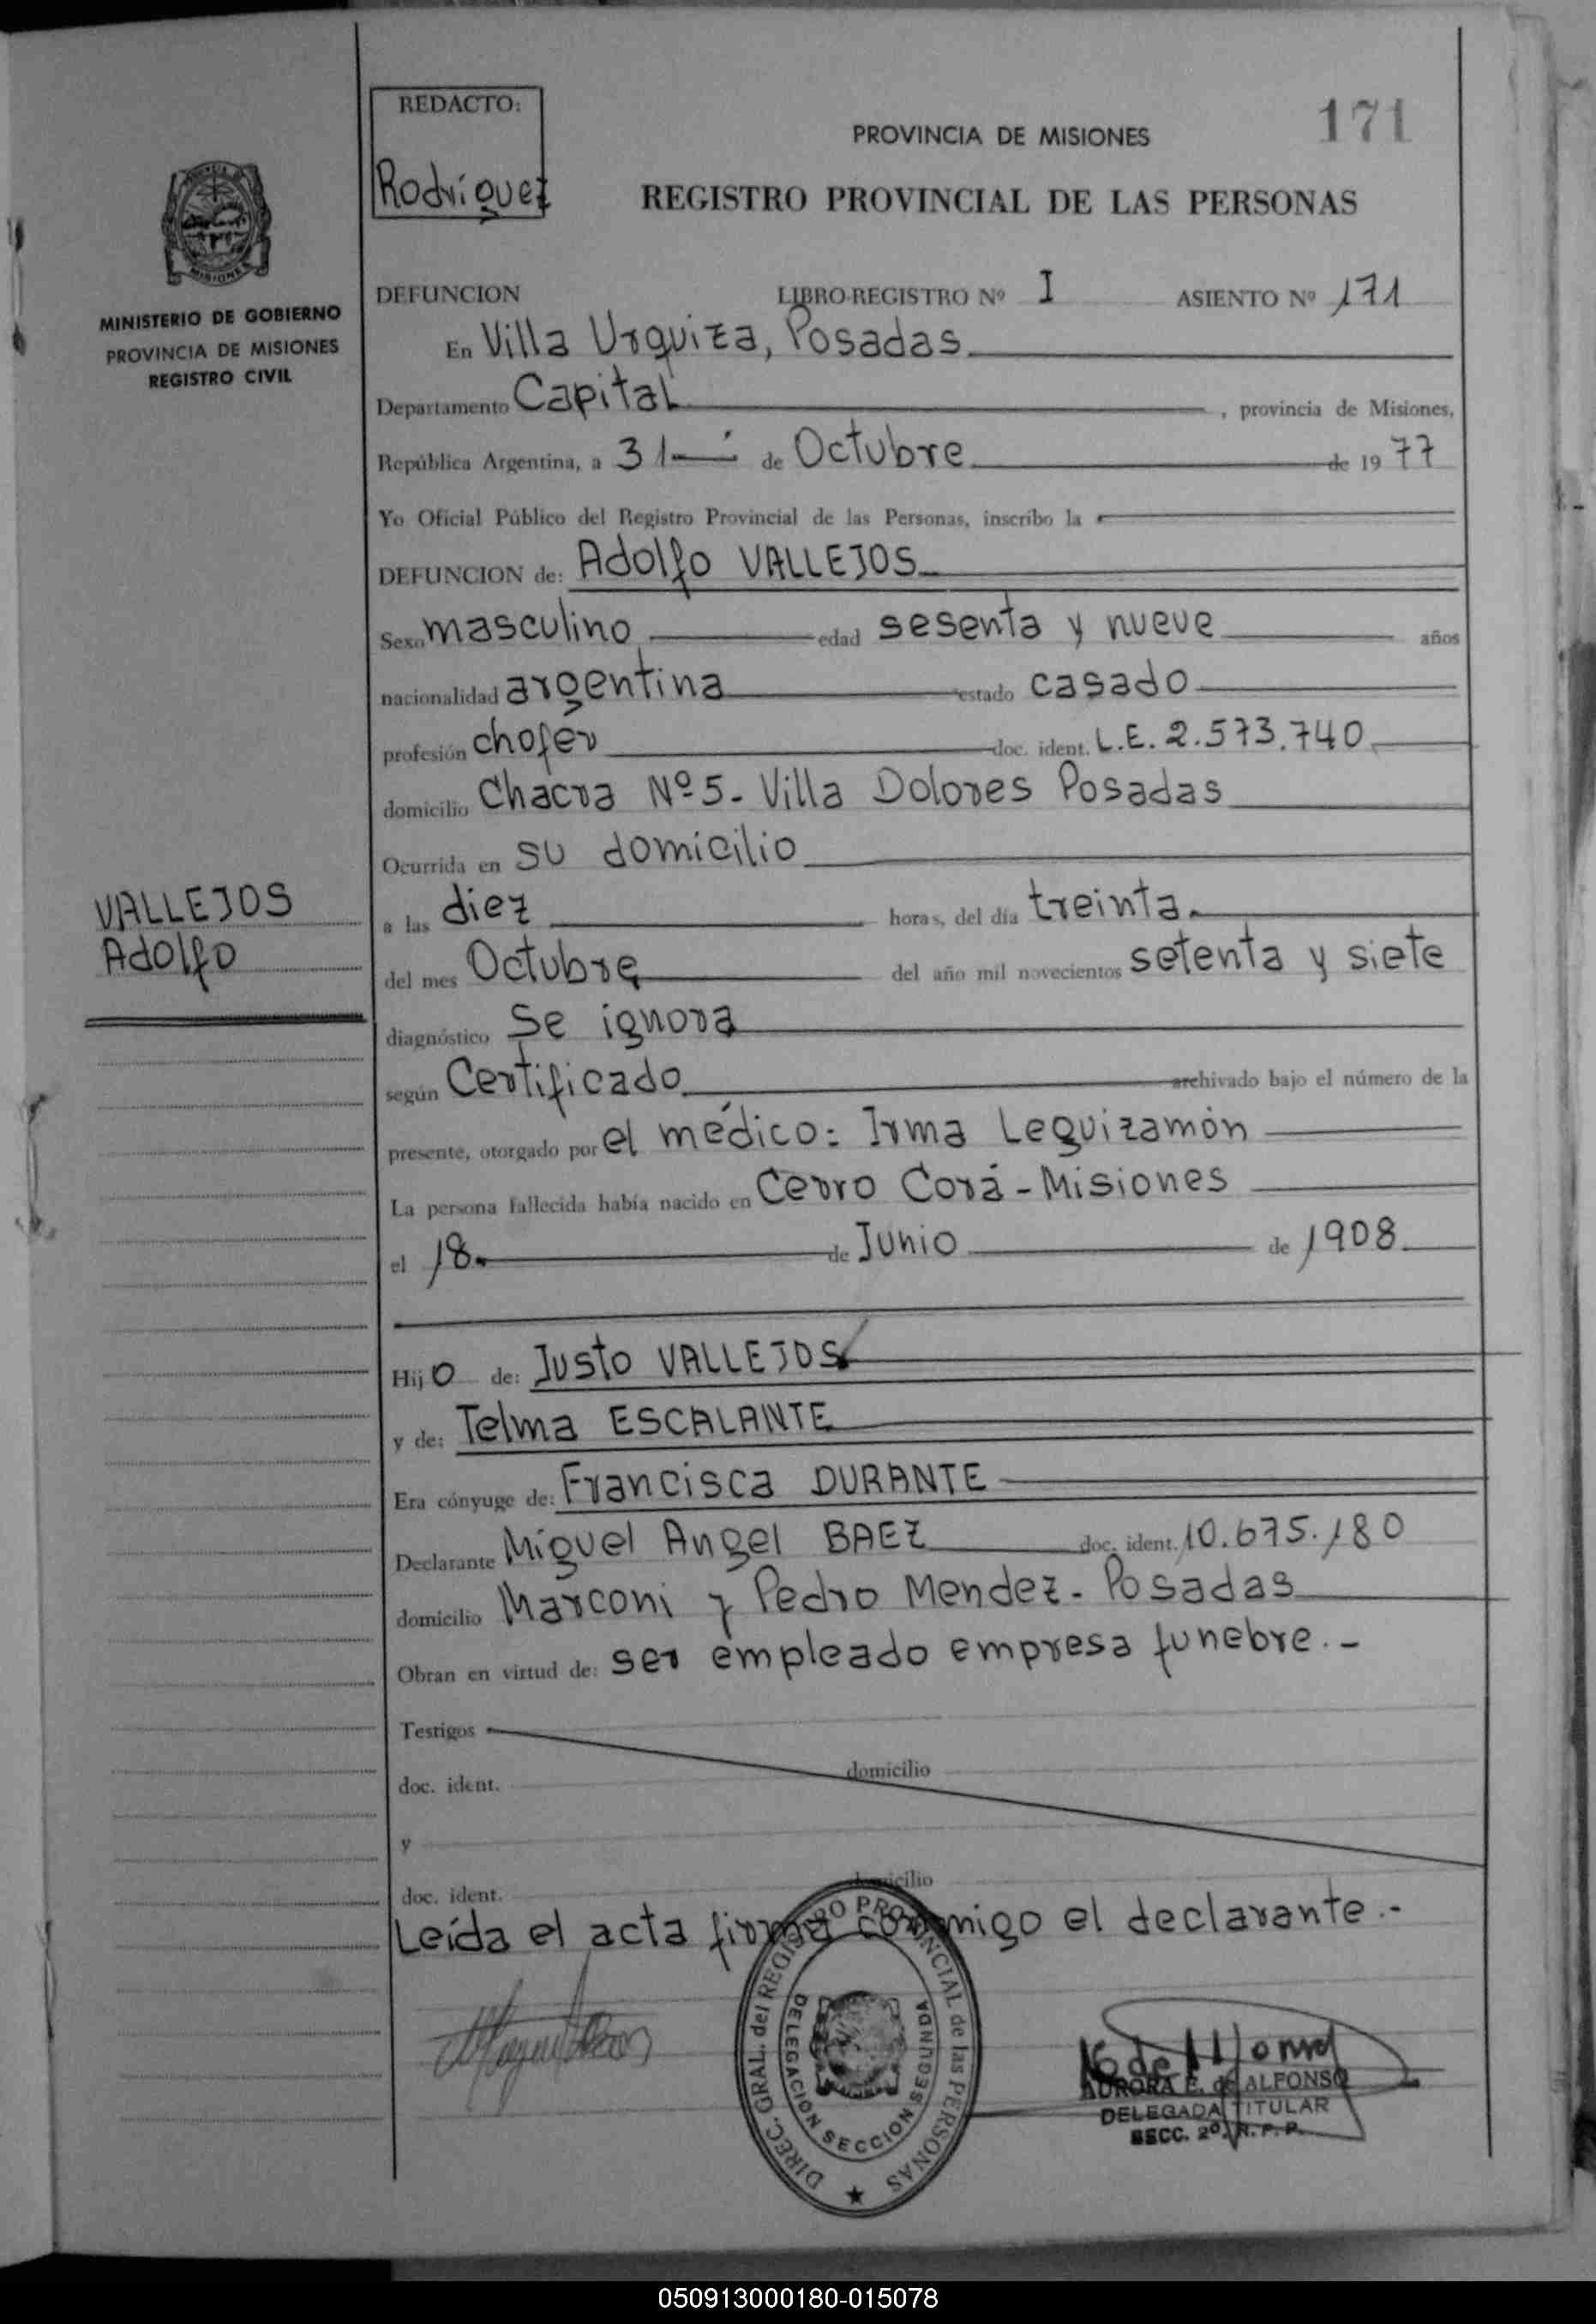 REDACTO:
Rodríguez
171
PROVINCIA DE MISIONES
REGISTRO PROVINCIAL DE LAS PERSONAS
MISIONES
MINISTERIO DE GOBIERNO
PROVINCIA DE MISIONES
REGISTRO CIVIL
DEFUNCION LIBRO-REGISTRO Nº I ASIENTO Nº 171
En Villa Urquiza, Posadas
Departamento Capital , provincia de Misiones,
República Argentina, a 31 de Octubre de 1977
Yo Oficial Público del Registro Provincial de las Personas, inscribo la
DEFUNCION de: Adolfo VALLEJOS
Sexo masculino edad sesenta y nueve años
nacionalidad argentina estado casado
profesión chofer doc. ident. L.E. 2.573.740
domicilio Chacra Nº 5 - Villa Dolores Posadas
Ocurrida en su domicilio
VALLEJOS
Adolfo
a las diez horas, del día treinta
del mes Octubre del año mil novecientos setenta y siete
diagnóstico Se ignora
según Certificado archivado bajo el número de la
presente, otorgado por el médico: Irma Leguizamón
La persona fallecida había nacido en Cerro Corá - Misiones
el 18 de Junio de 1908
Hijo de: Justo VALLEJOS
y de: Telma ESCALANTE
Era cónyuge de: Francisca DURANTE
Declarante Miguel Angel BAEZ doc. ident. 10.675.180
domicilio Marconi y Pedro Mendez - Posadas
Obran en virtud de: ser empleado empresa funebre.-
Testigos
doc. ident. domicilio
y
doc. ident. domicilio
Leída el acta firma conmigo el declarante.-
DIREC. GRAL. del REGISTRO PROVINCIAL de las PERSONAS
DELEGACION SECCION SEGUNDA
AURORA E. de ALFONSO
DELEGADA TITULAR
SECC. 2º R. P. P.
050913000180-015078